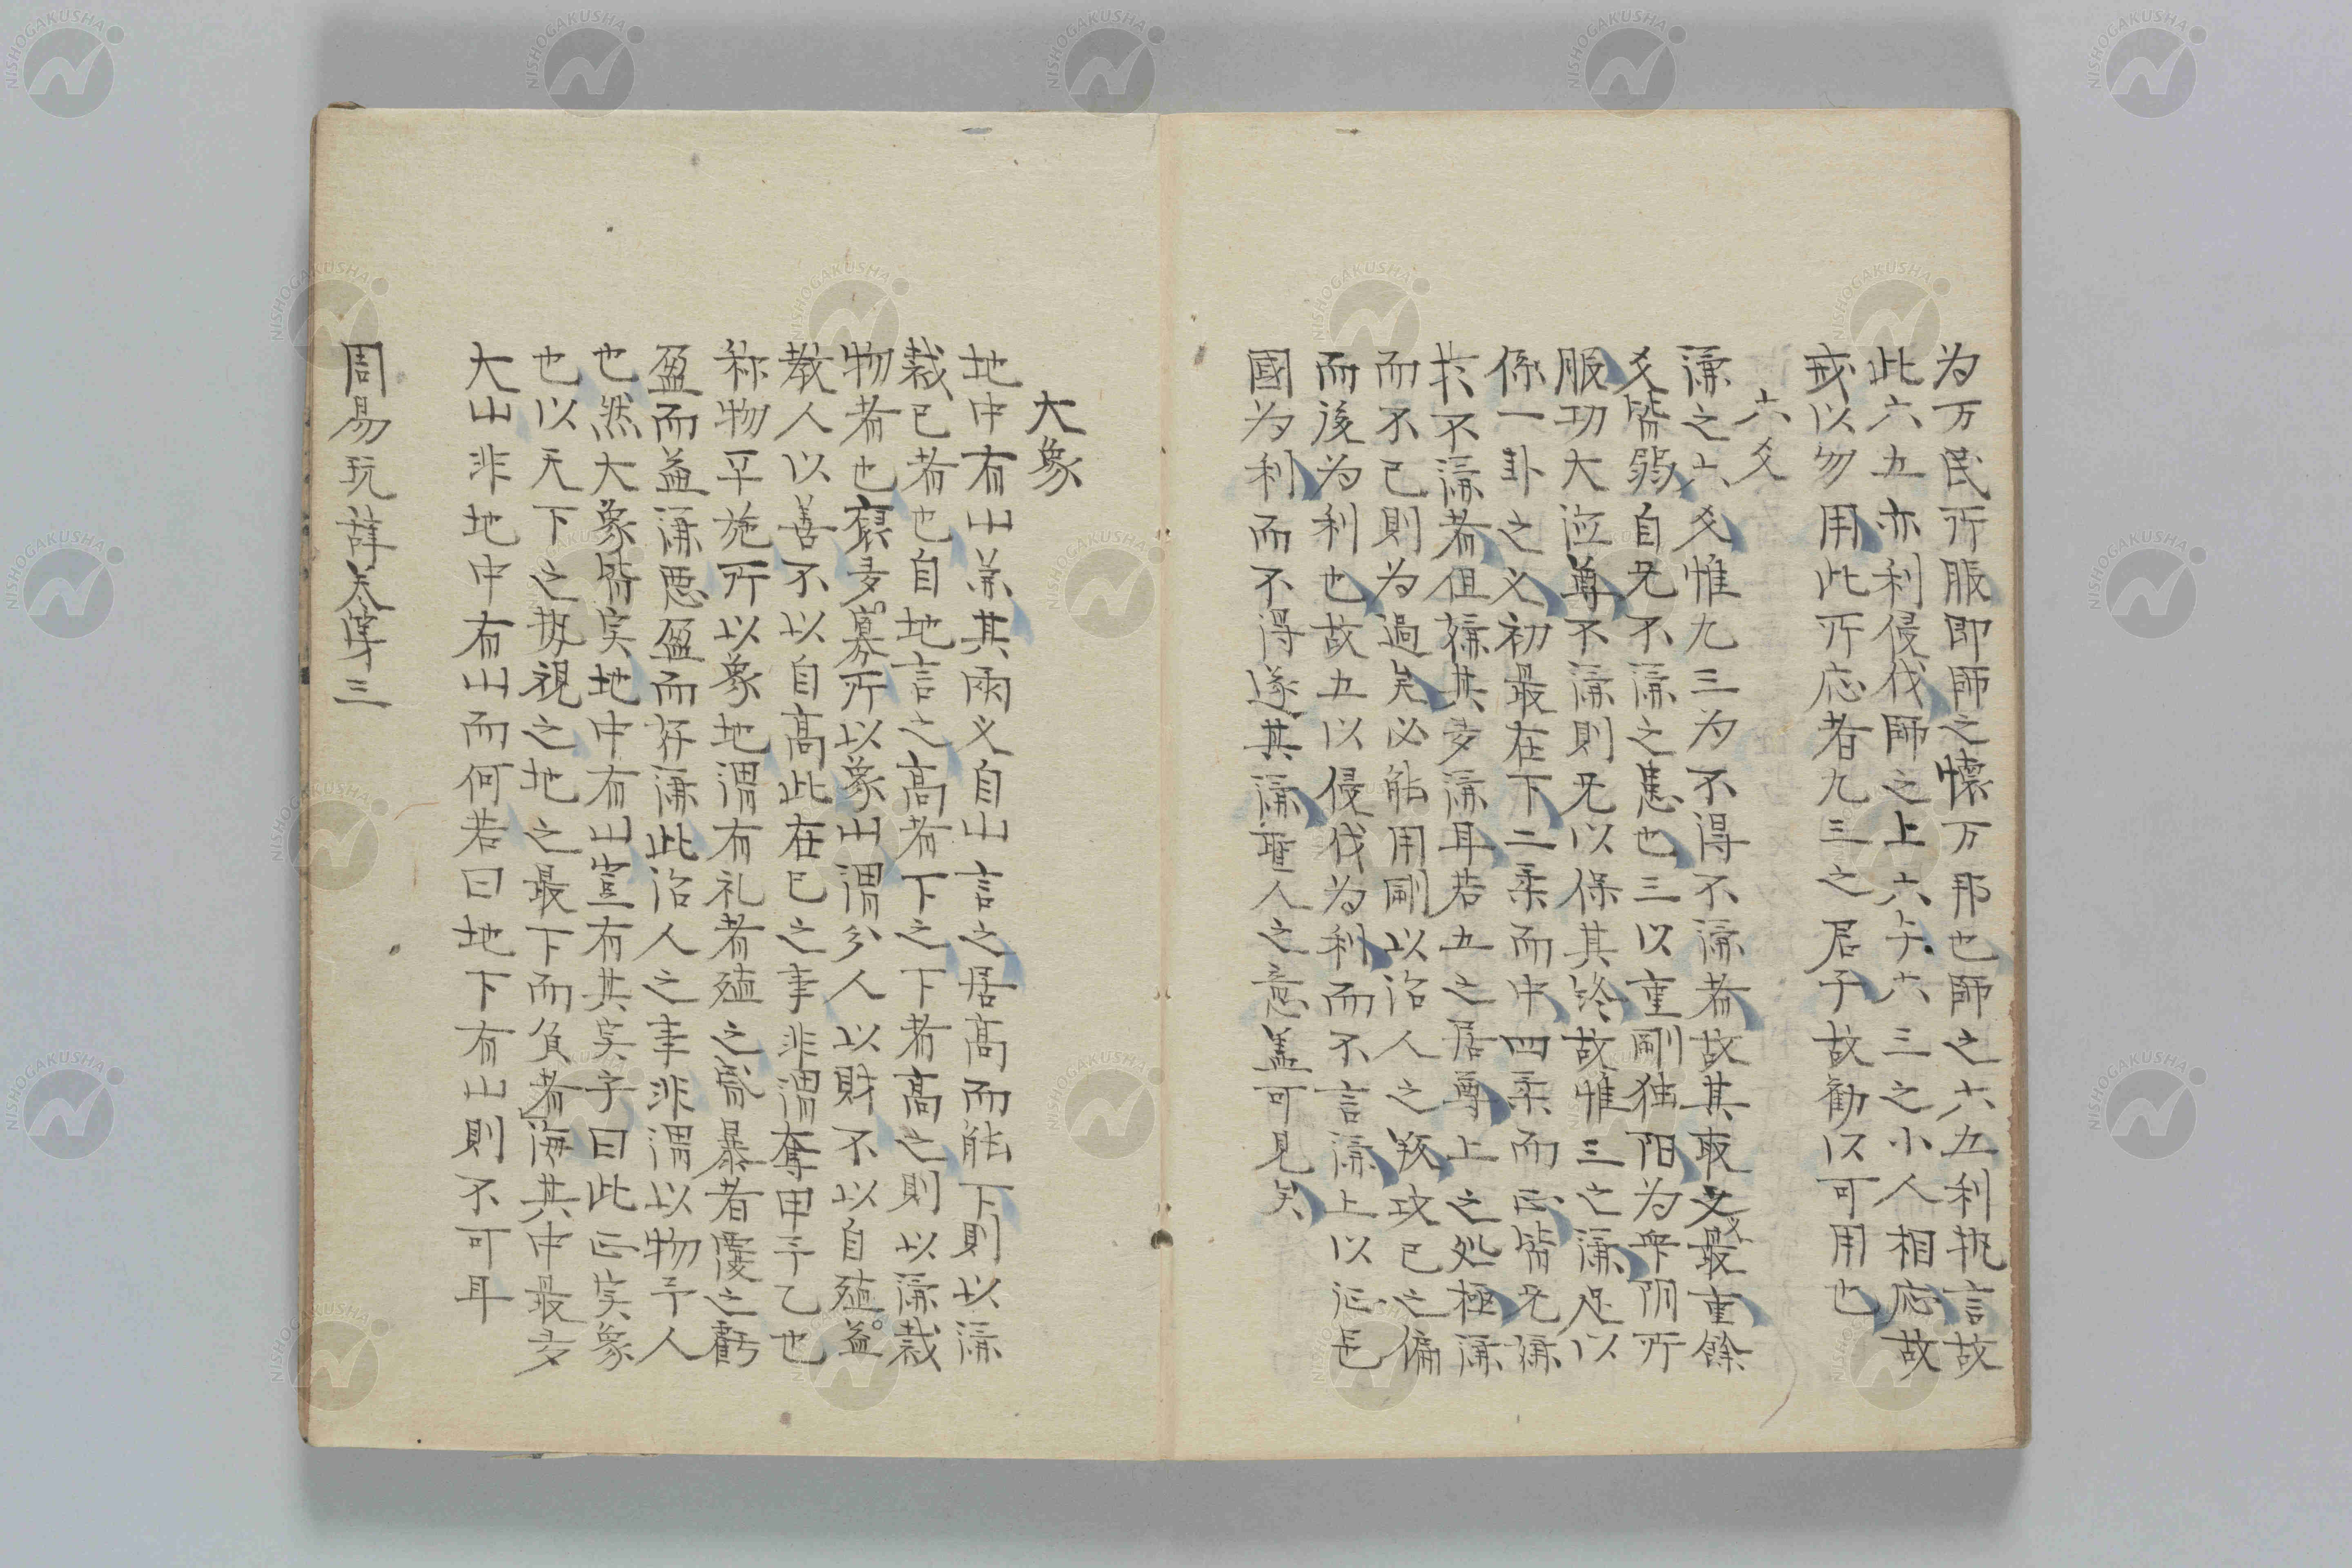 为万民所服即師之懷万邦也師之六五利执言故
此六五亦利侵伐師之上六与六三之小人相応故
戒以勿用此所応者九三之君子故勧以可用也
六爻
謙之六爻惟九三为不得不謙者故其取义最重餘
爻皆弱自无不謙之患也三以重剛独阳为衆阴所
服功大位尊不謙則无以保其終故惟三之謙足以
係一卦之义初最在下二柔而中四柔而正皆无嫌
於不謙者但嫌其多謙耳若五之居尊上之処極謙
而不已則为過矣必能用剛以治人之叛攻已之偏
而後为利也故五以侵伐为利而不言謙上以征邑
國为利而不得遂其謙聖人之意盖可見矣
大象
地中有山兼其兩义自山言之居高而能下則以謙
裁已者也自地言之高者下之下者高之則以謙裁
物者也裒多寡所以象山謂分人以財不以自殖益
教人以善不以自高此在已之事非謂奪甲予乙也
称物平施所以象地謂有礼者殖之昏暴者覆之虧
盈而益謙悪盈而好謙此治人之事非謂以物予人
也然大象皆実地中有山豈有其実乎曰此正実象
也以天下之势視之地之最下而負者海其中最多
大山非地中有山而何若曰地下有山則不可耳
周易玩辞巻第三
NISHOGAKUSHA